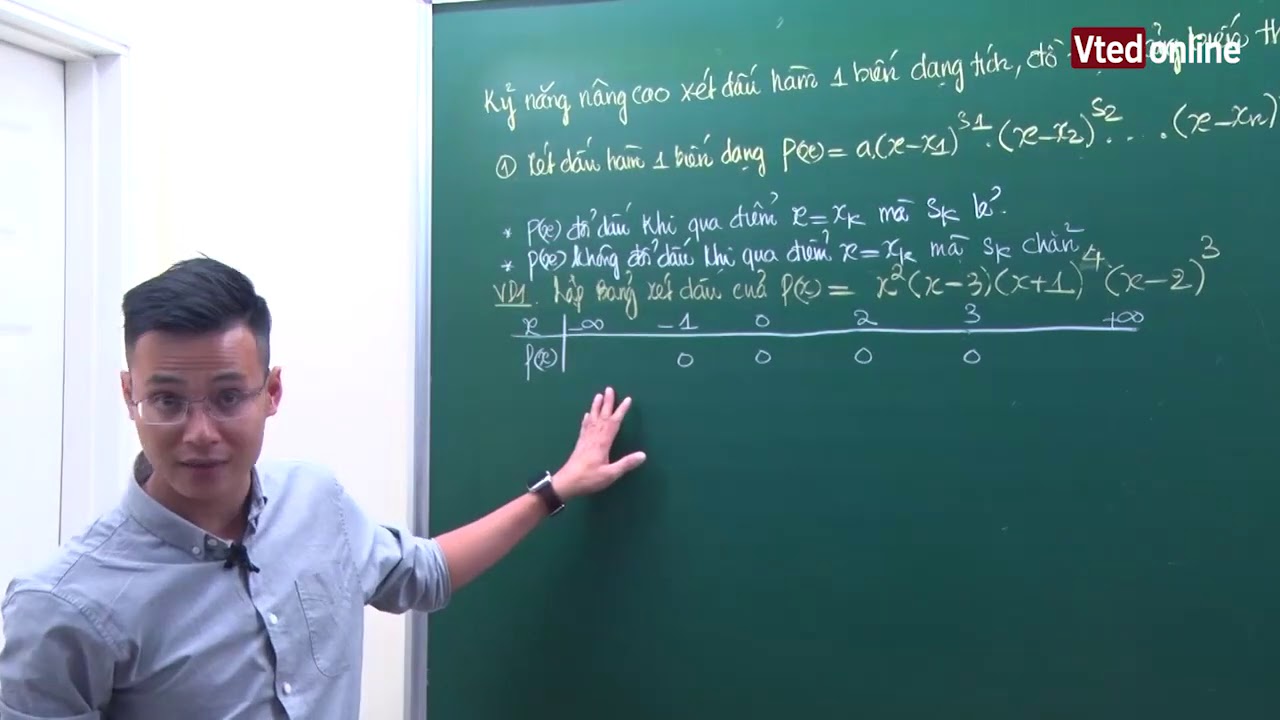 Vted online
Kỹ năng nâng cao xét dấu hàm 1 biến dạng tích, đồ
① Xét dấu hàm 1 biến dạng P(x) = a.(x-x₁)^S1 . (x-x₂)^S2 . ... . (x-xₙ)
* P(x) đổi dấu khi qua điểm x = xₖ mà Sₖ lẻ.
* P(x) không đổi dấu khi qua điểm x = xₖ mà Sₖ chẵn
VD1. Lập bảng xét dấu của P(x) = x²(x-3)(x+1)⁴(x-2)³
x -∞ -1 0 2 3 +∞
P(x) 0 0 0 0